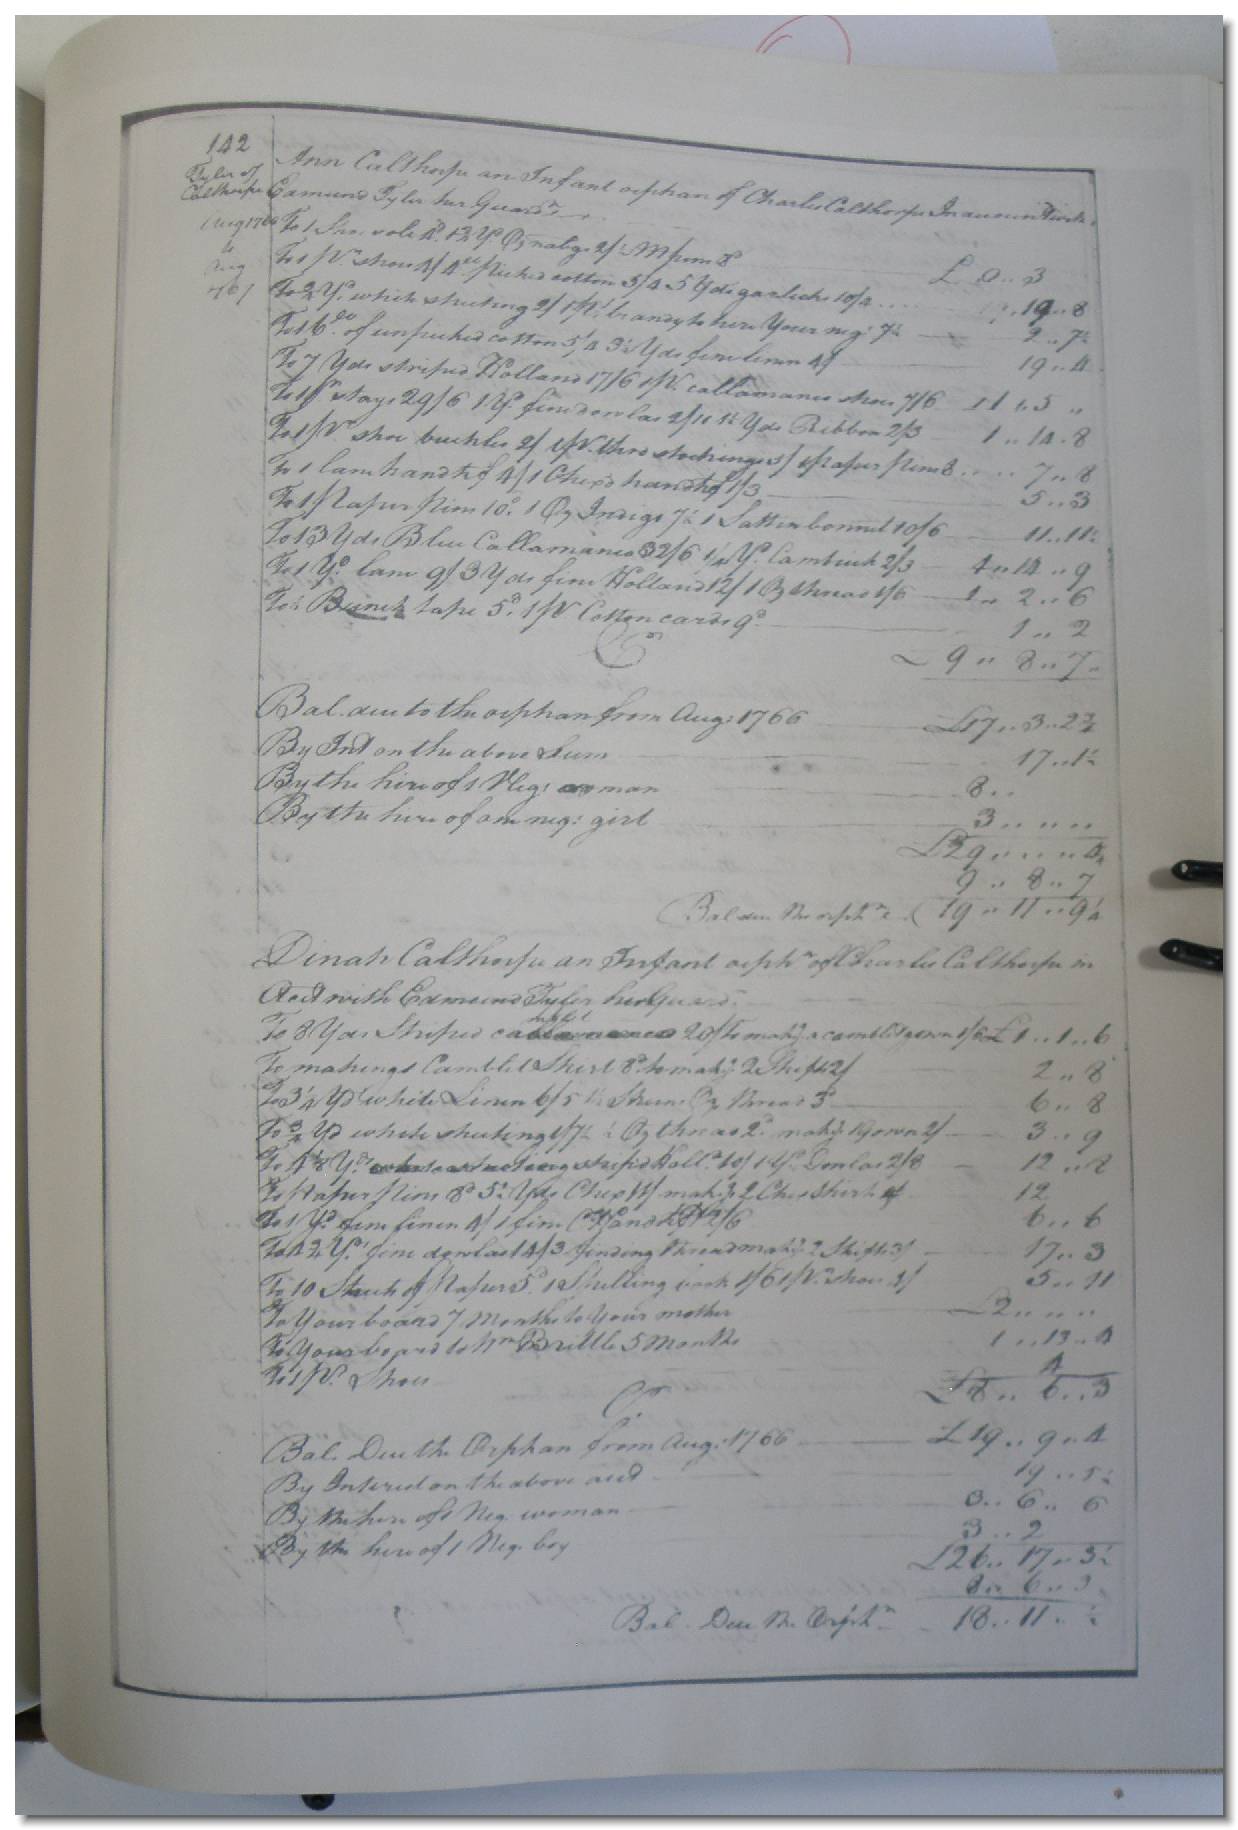 142
Tyler of
Calthorpe
Aug 1766
to
Aug
1767
Ann Calthorpe an Infant orphan of Charles Calthorpe In account with
Edmund Tyler her Guardn
To 1 Shoe sole 4d 13/4 Yd Oznabgs 2/ Mpins 8d £ 0 .. 3
To 1 Pr. shoes 4/ 4lb picked cotton 5/4 5 Yds garlicks 10/4 .. 19 .. 8
To 3/4 Yd. white sheeting 2/ 1 Pt. brandy to hire Your neg: 7½ 2 .. 7½
To 1 6lb of unpicked cotton 5/4 3½ Yds fine linnen 14/ 19 .. 4
To 7 Yds striped Holland 17/6 1 Pr. callamanco shoes 7/6 1 .. 5 ..
To 1 Pr stays 29/6 1 Yd. fine dowlas 2/11 1½ Yds Ribbon 2/3 1 .. 14 . 8
To 1 Pr. shoe buckles 2/ 1 Pr. thre stockings 5/ 1 Paper Pins 8 7 .. 8
To 1 lawn handkf 4/ 1 Chex'd handkf 1/3 5 .. 3
To 1 Paper Pins 10d. 1 Oz Indigo 7½ 1 Sattin bonnet 10/6 11 .. 11½
To 13 Yds Blue Callamanco 32/6 1/4 Yd. Cambrick 2/3 1 .. 14 .. 9
To 1 Yd. lawn 9/ 3 Yds fine Holland 12/ 1 Oz thread 1/6 1 .. 2 .. 6
To 1 Bunch tape 5d. 1 Pr Cotton cards 9d. 1 .. 2
Cr £ 9 .. 8 .. 7 ..
Bal. due to the orphan from Aug: 1766 £17 .. 3 .. 2¾
By Int on the above sum 17 .. 1½
By the hire of 1 Neg: woman 8 ..
By the hire of one neg: girl 3 .. .. ..
£29 .. .. .. 4¼
9 .. 8 .. 7
Bal due the orphn £ 19 .. 11 .. 9¼
Dinah Calthorpe an Infant orphn of Charles Calthorpe in
Acct with Edmund Tyler her Guard.
To 8 Yds Striped camblet 20/ To makg. a camblet gown 1/6 £ 1 .. 1 .. 6
To makeing a Camblet Skirt 8d. to makg. 2 Shifts 2/ 2 .. 8
To 3¼ Yd white Linen 6/5 Oz thread 3d 6 .. 8
To ¾ Yd white sheeting 1/7½ ½ Oz thread 2d. makg. 1 Gown 2/ 3 .. 9
To 4⅛ Yds striped Holld. 10/ 1 Yd. Dowlas 2/8 12 .. 8
To 1 Paper Pins 8d 5½ Yds Chex makg. 2 Chex Shirts 12
To 1 Yd. fine linen 4/ 1 fine Handkf 2/6 6 .. 6
To 4¾ Yd. fine dowlas 14/3 finding thread makg. 2 Shifts 3/ 17 .. 3
To 10 Stick of Paper 5d. 1 Spelling book 1/6 1 Pr. shoes 4/ 5 .. 11
To Your board 7 Months to Your mother £2 .. .. ..
To Your board to Wm Brittle 5 Months 1 .. 13 .. 4
To 1 Pr. Shoes 4
Cr. £8 .. 6 .. 3
Bal. Due the Orphan from Aug: 1766 £19 .. 9 .. 4
By Interest on the above acct 19 .. 5½
By the hire of 1 Neg. woman 3 .. 6 .. 6
By the hire of 1 Neg. boy 3 .. 2
£26 .. 17 .. 3½
8 .. 6 .. 3
Bal. Due the Orphn 18 .. 11 .. ½